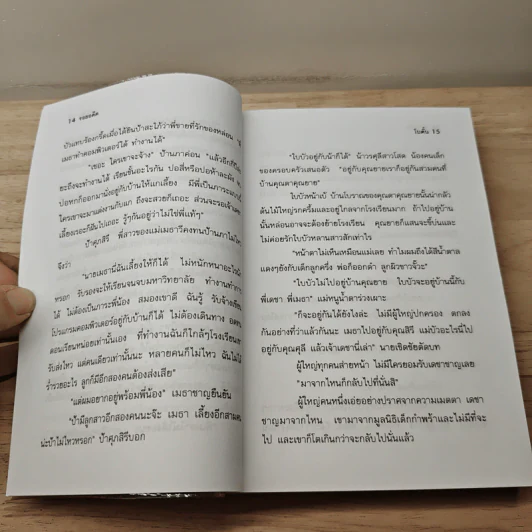 14 รอยอดีต
ป้าแทบร้องกรี๊ดเมื่อได้ยินป้าสะใภ้ว่าพี่ชายที่รักของหล่อน
เมธาทำคอมพิวเตอร์ได้ ทำงานได้"
"เชอะ ใครเขาจะจ้าง" ป้าภาค่อน "แล้วอีกกี่ปี
ยะถึงจะทำงานได้ เรียนชั้นอะไรกัน
ใครเขาจะมาแต่งงานกับแก ถึงจะสวยก็เถอะ ส่วนจะรอเจ้าเดช
เลี้ยงมรอะก็ฝันไปเถอะ รู้ๆ กันอยู่ว่าไม่ใช่พี่แท้ๆ"
ป้าศุภสิรี พี่สาวของแม่เมธาวีคงทนป้าภาไม่ไหว
จึงว่า
"นายเมธานี่ฉันเลี้ยงให้ก็ได้ ไม่หนักหนาอะไร
หรอก รับรองจะให้เรียนจนจบมหาวิทยาลัย ทำงานทำการ
ได้ ไม่ต้องเป็นภาระพี่น้อง สมองเขาดี ฉันรู้ รับจ้างเขียน
โปรแกรมคอมพิวเตอร์อยู่กับบ้านก็ได้ ไม่ต้องเดินทาง อดทน
ตอนเรียนหน่อยเท่านั้นเอง ที่ทำงานฉันก็ใกล้ๆ โรงเรียน
รับส่งไหว แต่คนเดียวเท่านั้นนะ หลายคนก็ไม่ไหว ฉันไม่ได้
ร่ำรวยอะไร ลูกก็มีอีกสองคนต้องส่งเสีย"
"แต่ผมอยากอยู่พร้อมพี่น้อง" เมธาชาญยืนยัน
"ป้ามีลูกสาวอีกสองคนนะจ๊ะ เมธา เลี้ยงอีกสามคน
น่ะป้าไม่ไหวหรอก" ป้าศุภสิรีบอก
ใบตั๋น 15
"ใบบัวอยู่กับน้าก็ได้" น้าวรคุลีสาวโสด น้องคนเล็ก
ของครอบครัวเสนอตัว "อยู่กับคุณยายเราก็อยู่กันสามคนที่
บ้านคุณตาคุณยาย"
ใบบัวหน้าเบ้ บ้านโบราณของคุณตาคุณยายนั้นน่ากลัว
ต้นไม้ใหญ่รกครึ้มและอยู่ไกลจากโรงเรียนมาก ถ้าไปอยู่บ้าน
นั้นหล่อนอาจจะต้องย้ายโรงเรียน คุณยายก็แสนจะขี้บ่นและ
ไม่ค่อยรักใบบัวหลานสาวสักเท่าไร
"หน้าตาไม่เห็นเหมือนแม่เลย ทำไมผมถึงได้สีน้ำตาล
แดงๆ ยังกับเด็กลูกครึ่ง พ่อก็ออกดำ ลูกผิวขาวจั๊วะ"
"ใบบัวไม่ไปอยู่บ้านคุณยาย ใบบัวจะอยู่บ้านนี้กับ
พี่เดชา พี่เมธา" แม่หนูน้ำตาร่วงเผาะ
"ก็จะอยู่กันได้ยังไงล่ะ ไม่มีผู้ใหญ่ปกครอง ตกลง
กันอย่างที่ว่าแล้วกันนะ เมธาไปอยู่กับคุณสิรี แม่บัวอะไรนี่ไป
อยู่กับคุณคุลี แล้วเจ้าเดชานี่เล่า" นายเชิดชัยตัดบท
ผู้ใหญ่ทุกคนส่ายหน้า ไม่มีใครยอมรับเดชาชาญเลย
"มาจากไหนก็กลับไปที่นั่นสิ"
ผู้ใหญ่คนหนึ่งเอ่ยอย่างปราศจากความเมตตา เดชา
ชาญมาจากไหน เขามาจากมูลนิธิเด็กกำพร้าและไม่มีที่จะ
ไป และเขาก็โตเกินกว่าจะกลับไปนั่นแล้ว